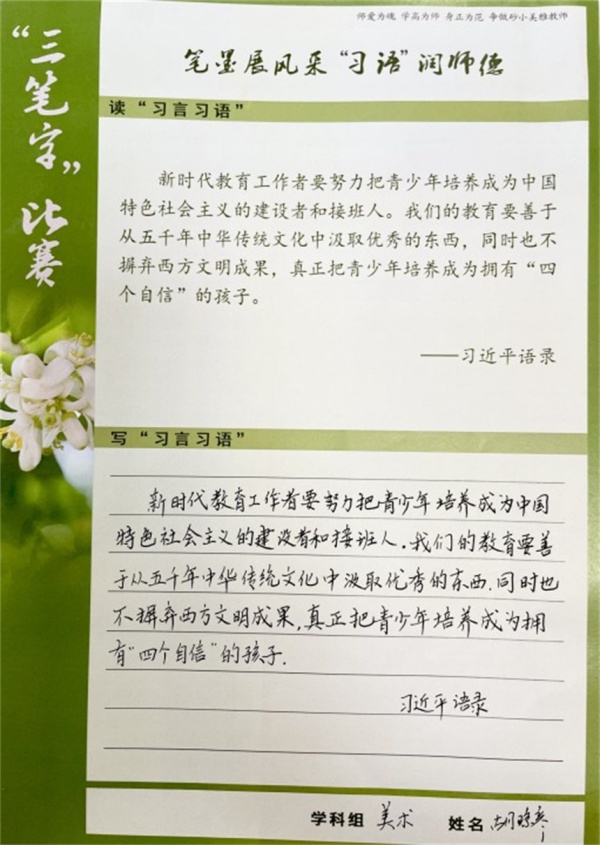 师爱为魂 学高为师 身正为范 争做砂小美雅教师
“三笔字”比赛
笔墨展风采“习语”润师德
读 “习言习语”
新时代教育工作者要努力把青少年培养成为中国
特色社会主义的建设者和接班人。我们的教育要善于
从五千年中华传统文化中汲取优秀的东西，同时也不
摒弃西方文明成果，真正把青少年培养成为拥有“四
个自信”的孩子。
——习近平语录
写 “习言习语”
新时代教育工作者要努力把青少年培养成为中国
特色社会主义的建设者和接班人.我们的教育要善
于从五千年中华传统文化中汲取优秀的东西.同时也
不摒弃西方文明成果,真正把青少年培养成为拥
有“四个自信”的孩子.
习近平语录
学科组 美术 姓名 胡